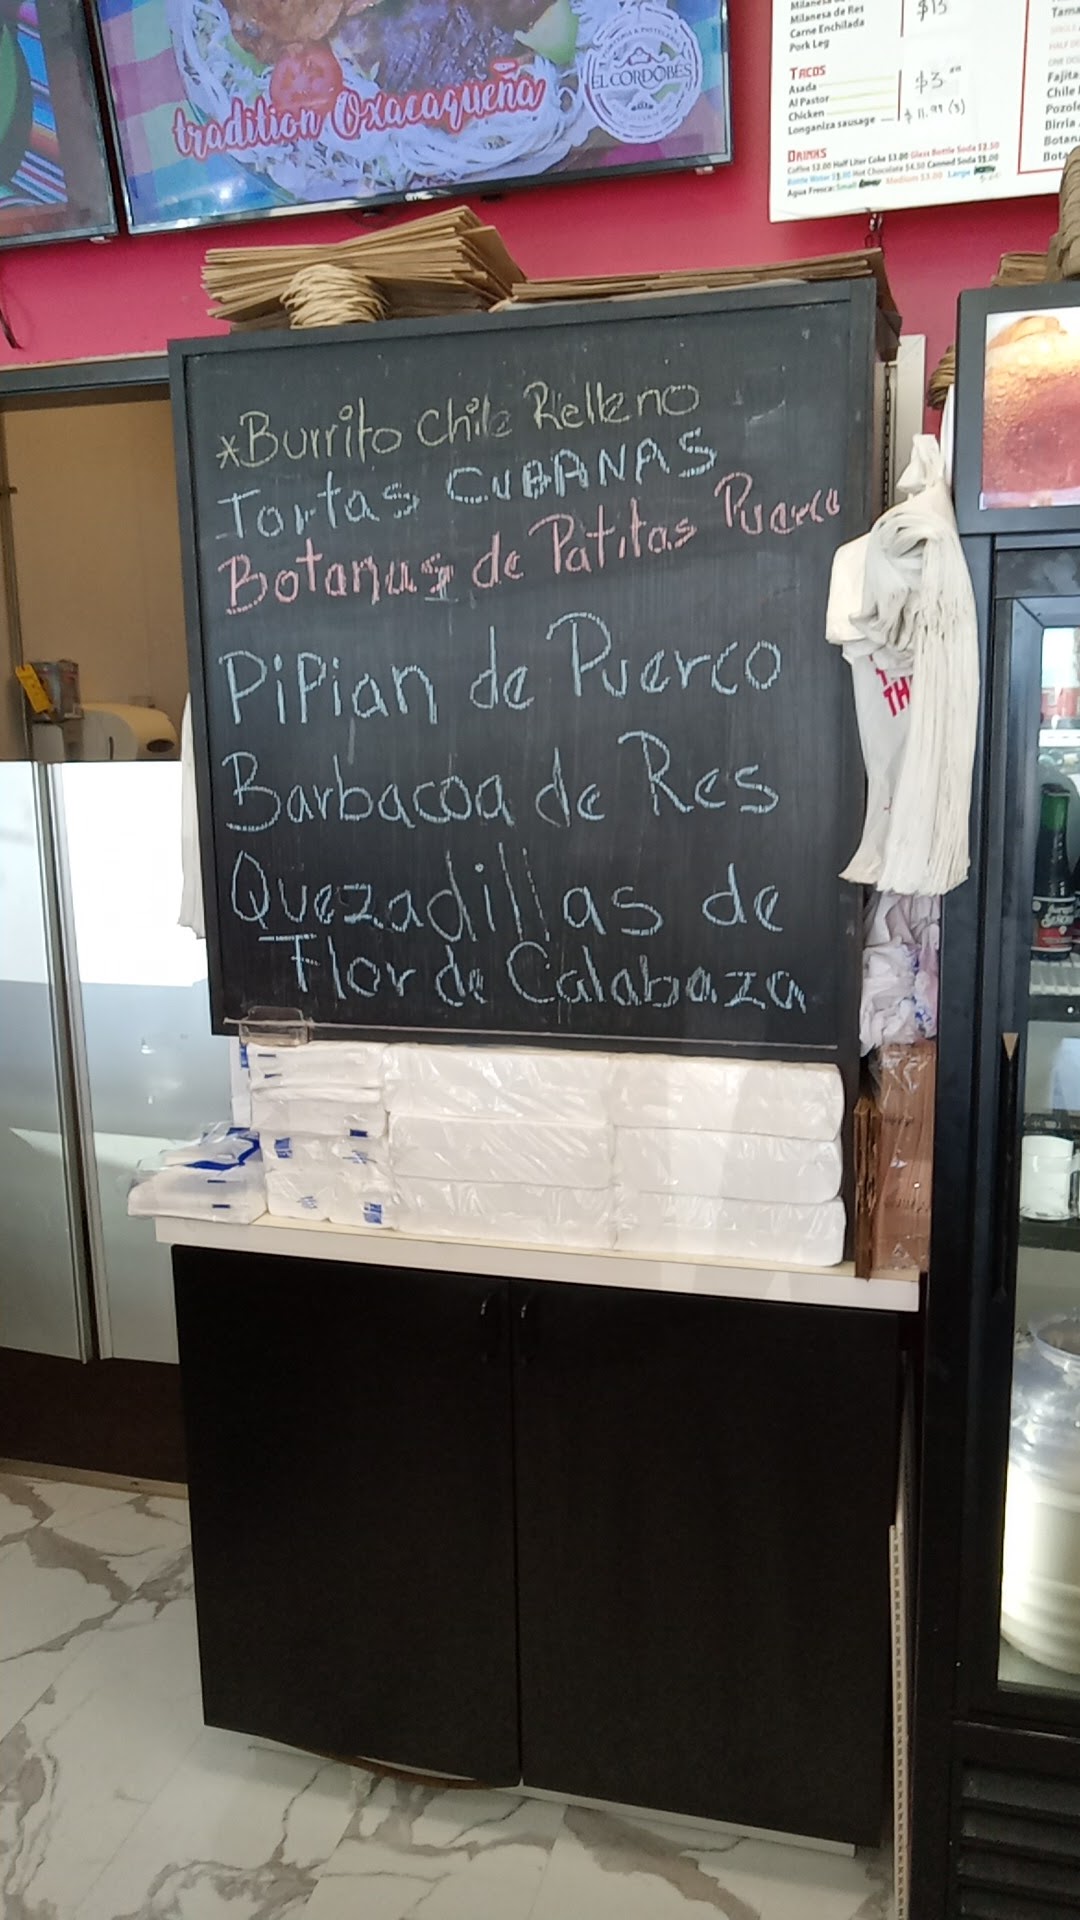 tradition Oaxaqueña
EL CORDOBÉS
Milanesa de Res
Carne Enchilada
Pork Leg
$13
TACOS
Asada
Al Pastor
Chicken
Longaniza sausage
$3.00
$11.99 (3)
DRINKS
Coffee $2.00 Half Liter Coke $3.00 Glass Bottle Soda $2.50
Hot Chocolate $4.50 Canned Soda
Agua Fresca: Small Medium $3.00 Large
Tama
Fajita
Chile
Pozol
Birria
Botan
Bota
*Burrito Chile Relleno
Tortas CUBANAS
Botanas de Patitas Puerco
PiPian de Puerco
Barbacoa de Res
Quezadillas de
Flor de Calabaza
TH